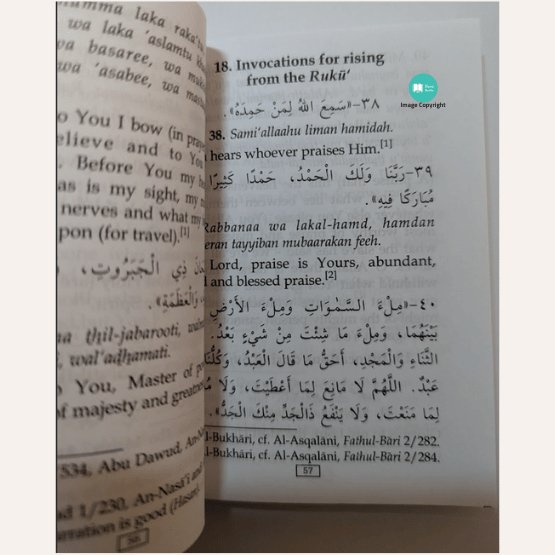 mma laka raka'
wa laka 'aslamtu
wa basaree, wa
wa 'asabee, wa
o You I bow (in
elieve and to Yo
. Before You my
as is my sight, my
nerves and what my
pon (for travel).[1]
ذِي الْجَبَرُوتِ،
وَالْعَظَمَةِ».
thil-jabarooti,
wal'adhamati.
o You, Master of
of majesty and greatne
534, Abu Dawud, An-
d 1/230, An-Nasa'i and
rration is good (Hasan)
56
18. Invocations for rising
from the Rukū'
٣٨-«سَمِعَ اللهُ لِمَنْ حَمِدَهُ».
38. Sami'allaahu liman hamidah.
hears whoever praises Him.[1]
٣٩-رَبَّنَا وَلَكَ الْحَمْدُ، حَمْدًا كَثِيرًا
مُبَارَكًا فِيهِ».
Rabbanaa wa lakal-hamd, hamdan
eran tayyiban mubaarakan feeh.
Lord, praise is Yours, abundant,
and blessed praise.[2]
٤٠-«مِلْءَ السَّمٰوَاتِ وَمِلْءَ الأَرْضِ
بَيْنَهُمَا، وَمِلْءَ مَا شِئْتَ مِنْ شَيْءٍ بَعْدُ.
الثَّنَاءِ وَالْمَجْدِ، أَحَقُّ مَا قَالَ الْعَبْدُ، وَكُلُّنَا
عَبْدٌ. اللَّهُمَّ لَا مَانِعَ لِمَا أَعْطَيْتَ، وَلَا
لِمَا مَنَعْتَ، وَلَا يَنْفَعُ ذَالْجَدِّ مِنْكَ الْجَدُّ».
l-Bukhāri, cf. Al-Asqalāni, Fathul-Bāri 2/282.
l-Bukhāri, cf. Al-Asqalāni, Fathul-Bāri 2/284.
57
Image Copyright